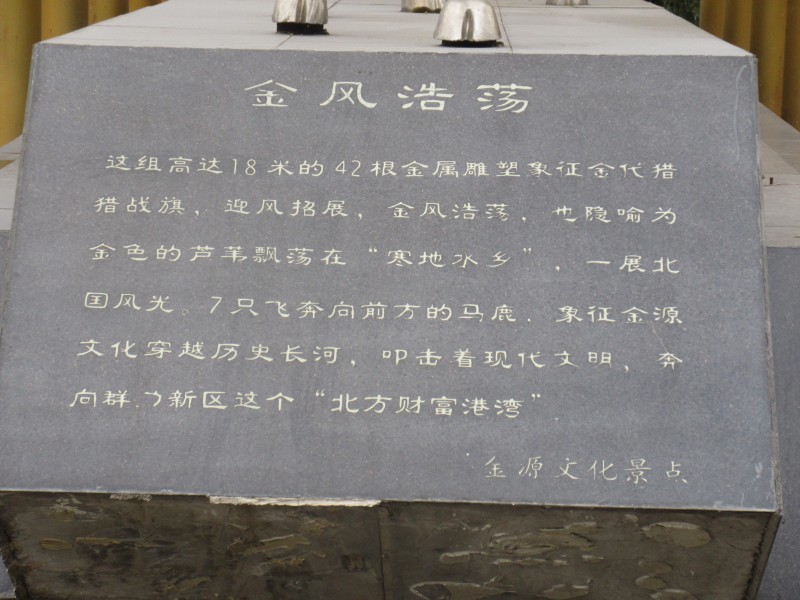 金风浩荡
这组高达18米的42根金属雕塑象征金代猎
猎战旗，迎风招展，金风浩荡，也隐喻为
金色的芦苇飘荡在“寒地水乡”，一展北
国风光。7只飞奔向前方的马鹿．象征金源
文化穿越历史长河，叩击着现代文明，奔
向群力新区这个“北方财富港湾”
金源文化景点